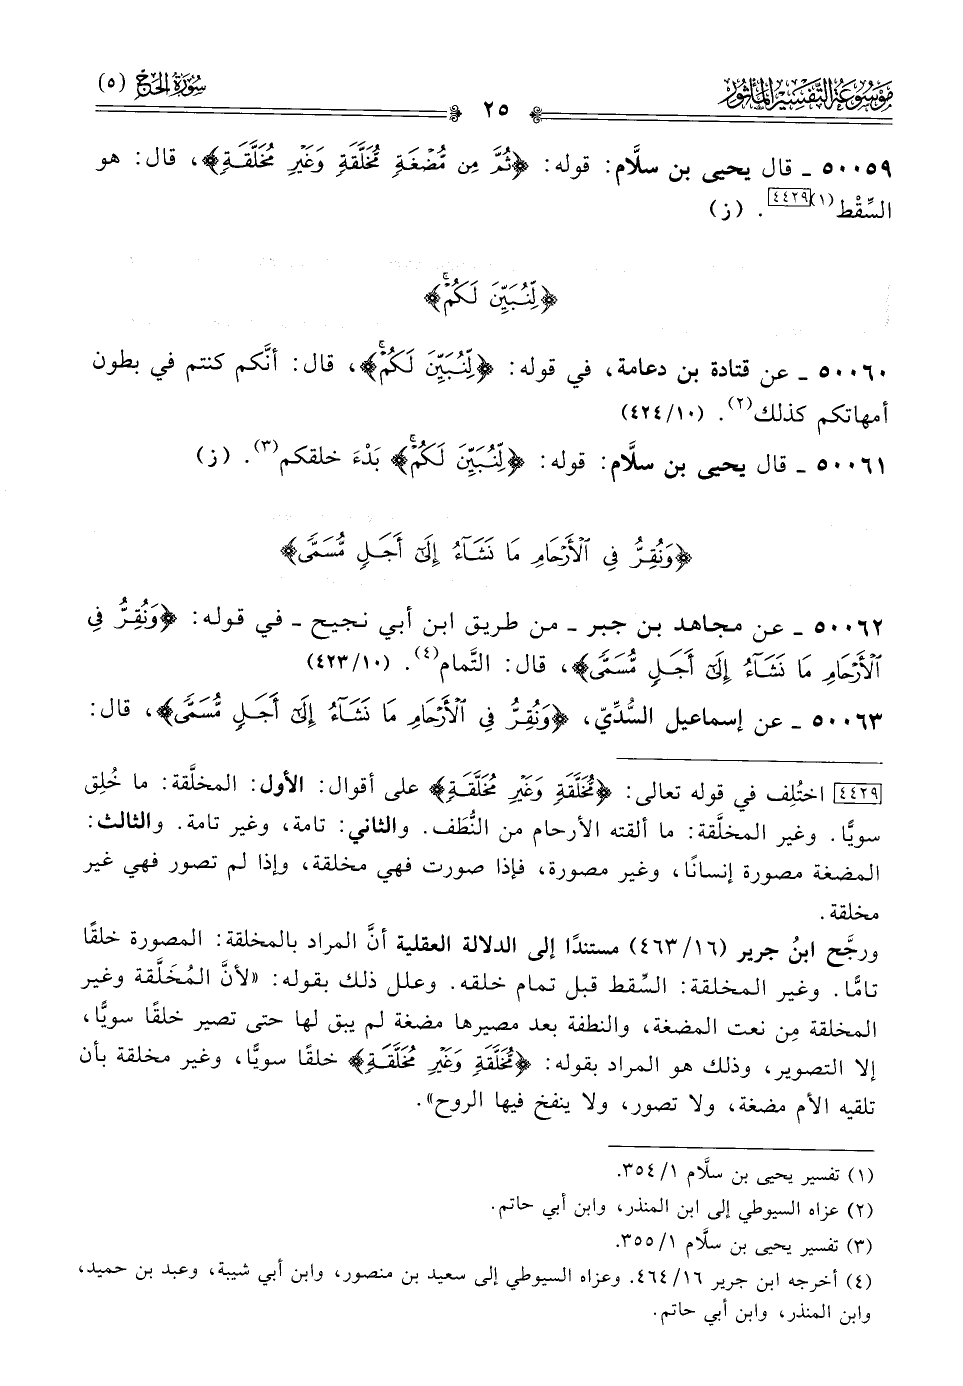 موسوعة التفسير المأثور
٢٥
سورة الحج (٥)
٥٠٠٥٩ ـ قال يحيى بن سلَّام: قوله: ﴿ثُمَّ مِن مُّضْغَةٍ مُّخَلَّقَةٍ وَغَيْرِ مُخَلَّقَةٍ﴾، قال: هو
السِّقْط(١)[٤٤٢٩]. (ز)
﴿لِّنُبَيِّنَ لَكُمْۚ﴾
٥٠٠٦٠ ـ عن قتادة بن دعامة، في قوله: ﴿لِّنُبَيِّنَ لَكُمْۚ﴾، قال: أنَّكم كنتم في بطون
أمهاتكم كذلك(٢). (٤٢٤/١٠)
٥٠٠٦١ ـ قال يحيى بن سلَّام: قوله: ﴿لِّنُبَيِّنَ لَكُمْۚ﴾ بَدْءَ خلقكم(٣). (ز)
﴿وَنُقِرُّ فِي ٱلْأَرْحَامِ مَا نَشَآءُ إِلَىٰٓ أَجَلٍ مُّسَمًّى﴾
٥٠٠٦٢ ـ عن مجاهد بن جبر ـ من طريق ابن أبي نجيح ـ في قوله: ﴿وَنُقِرُّ فِي
ٱلْأَرْحَامِ مَا نَشَآءُ إِلَىٰٓ أَجَلٍ مُّسَمًّى﴾، قال: التَّمام(٤). (٤٢٣/١٠)
٥٠٠٦٣ ـ عن إسماعيل السُّدِّيّ، ﴿وَنُقِرُّ فِي ٱلْأَرْحَامِ مَا نَشَآءُ إِلَىٰٓ أَجَلٍ مُّسَمًّى﴾، قال:
[٤٤٢٩] اختُلِف في قوله تعالى: ﴿مُّخَلَّقَةٍ وَغَيْرِ مُخَلَّقَةٍ﴾ على أقوال: الأول: المخلَّقة: ما خُلِق
سويًّا. وغير المخلَّقة: ما ألقته الأرحام من النُّطَف. والثاني: تامة، وغير تامة. والثالث:
المضغة مصورة إنسانًا، وغير مصورة، فإذا صورت فهي مخلقة، وإذا لم تصور فهي غير
مخلقة.
ورجَّح ابنُ جرير (٤٦٣/١٦) مستندًا إلى الدلالة العقلية أنَّ المراد بالمخلقة: المصورة خلقًا
تامًّا. وغير المخلقة: السِّقط قبل تمام خلقه. وعلل ذلك بقوله: «لأنَّ المُخَلَّقة وغير
المخلقة مِن نعت المضغة، والنطفة بعد مصيرها مضغة لم يبق لها حتى تصير خلقًا سويًّا،
إلا التصوير، وذلك هو المراد بقوله: ﴿مُّخَلَّقَةٍ وَغَيْرِ مُخَلَّقَةٍ﴾ خلقًا سويًّا، وغير مخلقة بأن
تلقيه الأم مضغة، ولا تصور، ولا ينفخ فيها الروح».
(١) تفسير يحيى بن سلَّام ٣٥٤/١.
(٢) عزاه السيوطي إلى ابن المنذر، وابن أبي حاتم.
(٣) تفسير يحيى بن سلَّام ٣٥٥/١.
(٤) أخرجه ابن جرير ٤٦٤/١٦. وعزاه السيوطي إلى سعيد بن منصور، وابن أبي شيبة، وعبد بن حميد،
وابن المنذر، وابن أبي حاتم.